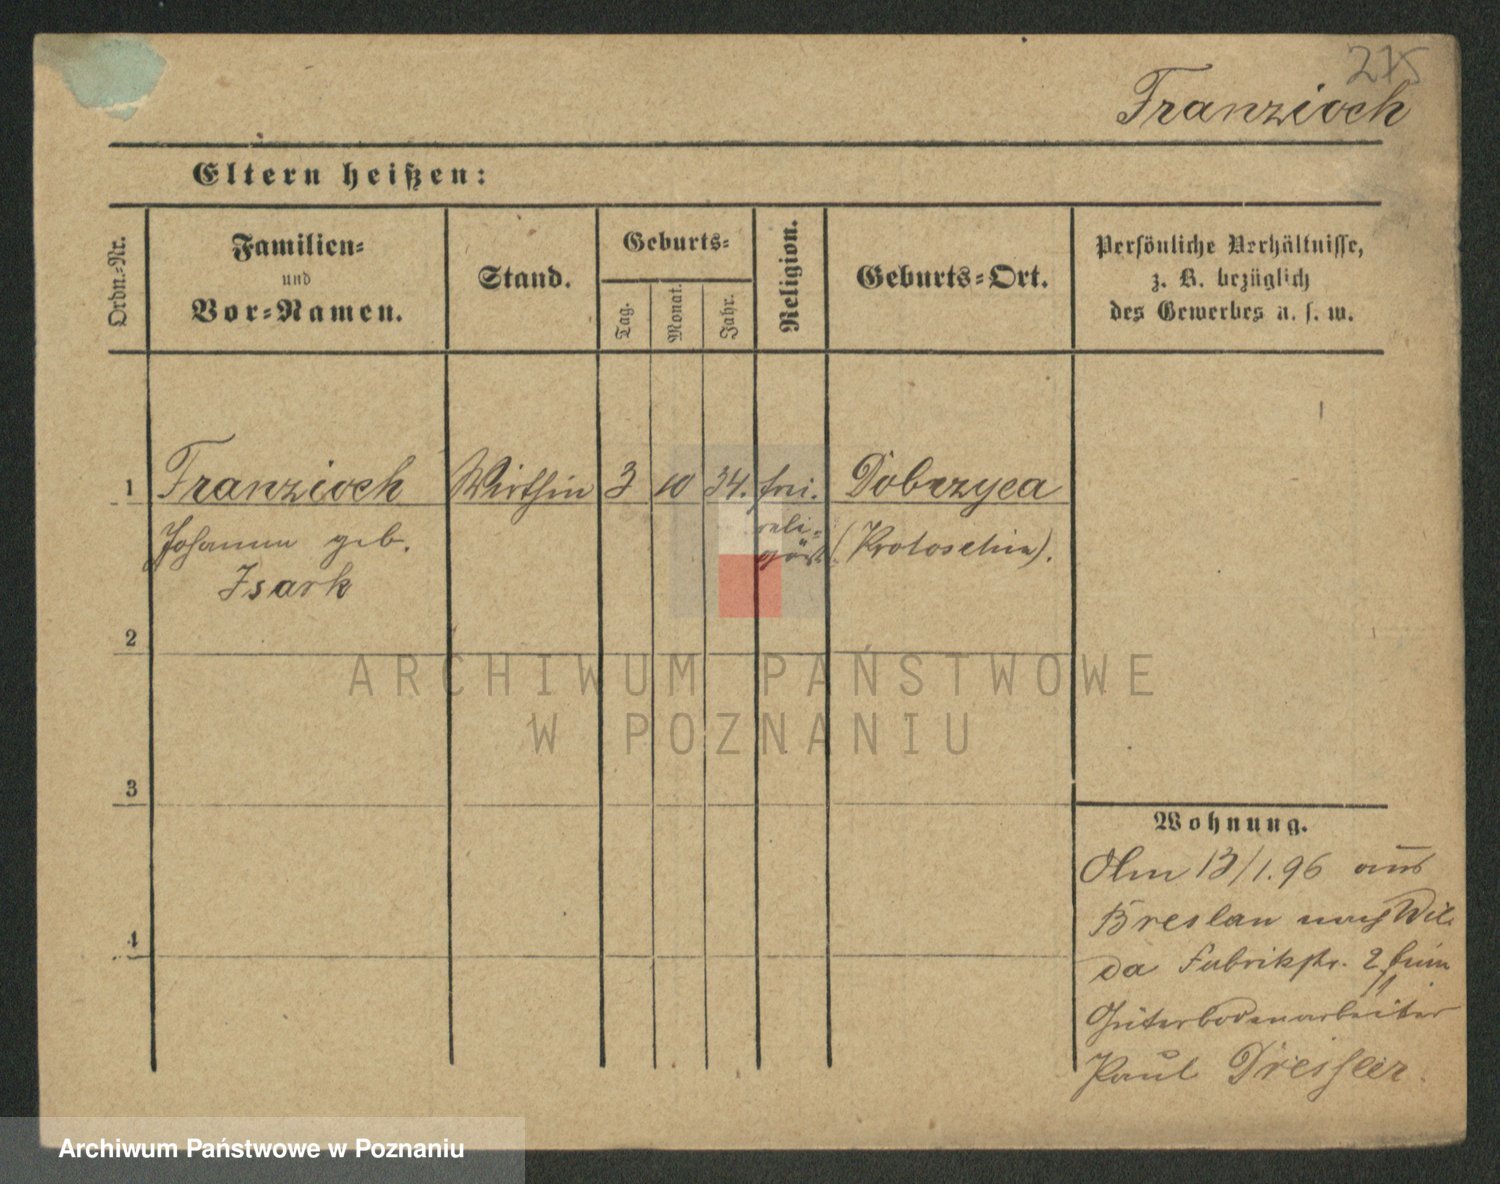 275
Franzioch
Eltern heißen:
Ordn.-Nr.
Familien-
und
Vor-Namen.
Stand.
Geburts-
Tag.
Monat.
Jahr.
Religion.
Geburts-Ort.
Persönliche Verhältnisse,
z. B. bezüglich
des Gewerbes u. s. w.
1 Franzioch Wirthin 3 10 34. frei- Dobrzyca
Johanna geb. reli- (Krotoschin).
giös
Isark
2
3
4
Wohnung.
Am 13/1.96 aus
Breslau nach Wil-
da Fabrikstr. 2 beim
Güterbodenarbeiter
Paul Dressler.
ARCHIWUM PAŃSTWOWE
W POZNANIU
Archiwum Państwowe w Poznaniu